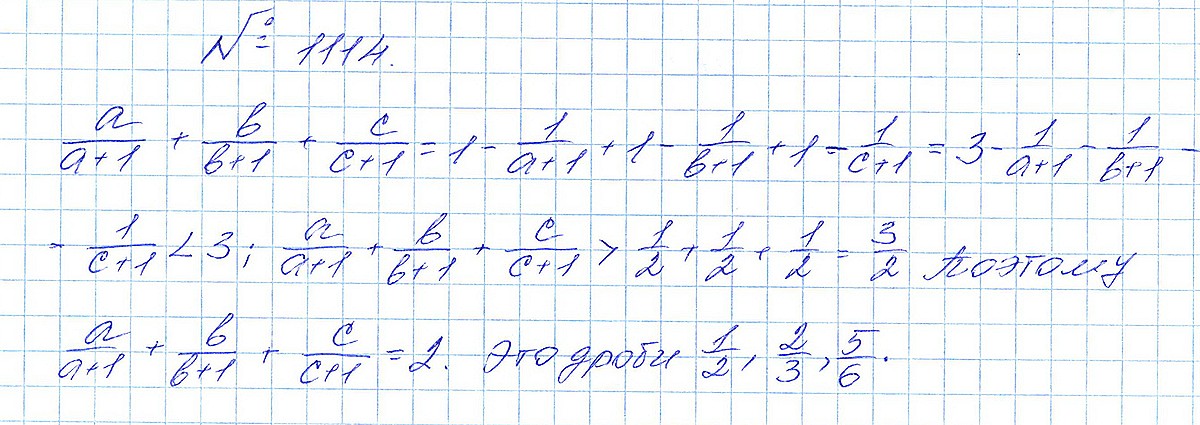 № 1114.
a/(a+1) + b/(b+1) + c/(c+1) = 1 - 1/(a+1) + 1 - 1/(b+1) + 1 - 1/(c+1) = 3 - 1/(a+1) - 1/(b+1) -
- 1/(c+1) < 3; a/(a+1) + b/(b+1) + c/(c+1) > 1/2 + 1/2 + 1/2 = 3/2 Поэтому
a/(a+1) + b/(b+1) + c/(c+1) = 2. Это дроби 1/2, 2/3, 5/6.